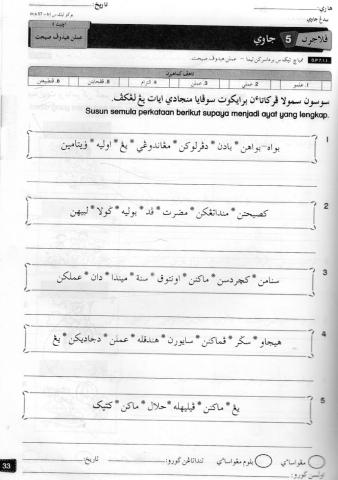 هاري:
تاريخ:
بيدڠ جاوي
ڤلاجرن 5 جاوي
عملن هيدوڤ صيحت
سوسون سمولا ڤرکاتاءن برايکوت سوڤايا منجادي ايات يڠ لڠکڤ.
Susun semula perkataan berikut supaya menjadi ayat yang lengkap.
1
بواه-بواهن * بادن * دڤرلوکن * مڠاندوڠي * يڠ * اوليه * ۏيتامين
2
کصيحتن * منداتڠکن * مضرت * قد * بوليه * ݢولا * لبيهن
3
سنامن * کچردسن * ماکنن * اونتوق * سنة * ميندا * دان * عملکن
4
هيجاو * سݢر * ڤماکنن * سايورن * هندقله * عملن * دجاديکن * يڠ
5
يڠ * ماکنن * ڤيليهله * حلال * ماکن * کتيک
مڠواساءي
بلوم مڠواساءي
تنداتاڠن ݢورو:
تاريخ:
اولسن ݢورو:
33